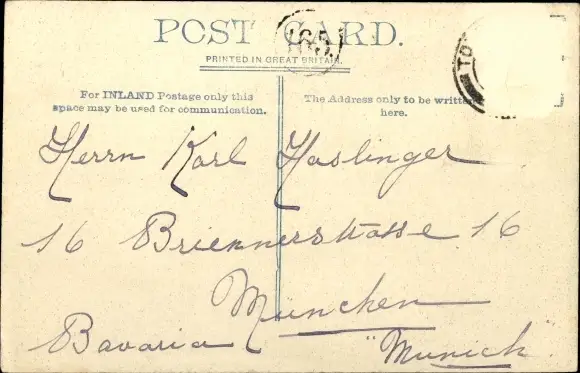 POST CARD.
165
PRINTED IN GREAT BRITAIN.
TO
For INLAND Postage only this
space may be used for communication.
The Address only to be written
here.
Herrn Karl Haslinger
16 Briennerstrasse 16
München
Bavaria "Munich"